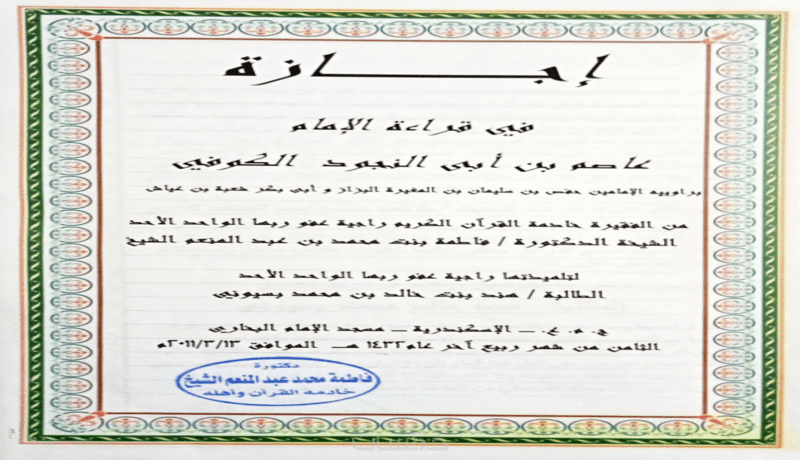 إجازة
في قراءة الإمام
عاصم بن أبى النجود الكوفي
براوييه الإمامين حفص بن سليمان بن المغيرة البزاز و أبى بكر شعبة بن عياش
من الفقيرة خادمة القرآن الكريم راجية عفو ربها الواحد الأحد
الشيخة الدكتورة / فاطمة بنت محمد بن عبد المنعم الشيخ
لتلميذتها راجية عفو ربها الواحد الأحد
الطالبة / هند بنت خالد بن محمد بسيوني
ج. م. ع. – الإسكندرية – مسجد الإمام البخارى
الثامن من شهر ربيع آخر عام ١٤٣٢ هـ الموافق ٢٠١١/٣/١٣م
دكتورة
فاطمة محمد عبد المنعم الشيخ
خادمة القرآن وأهله